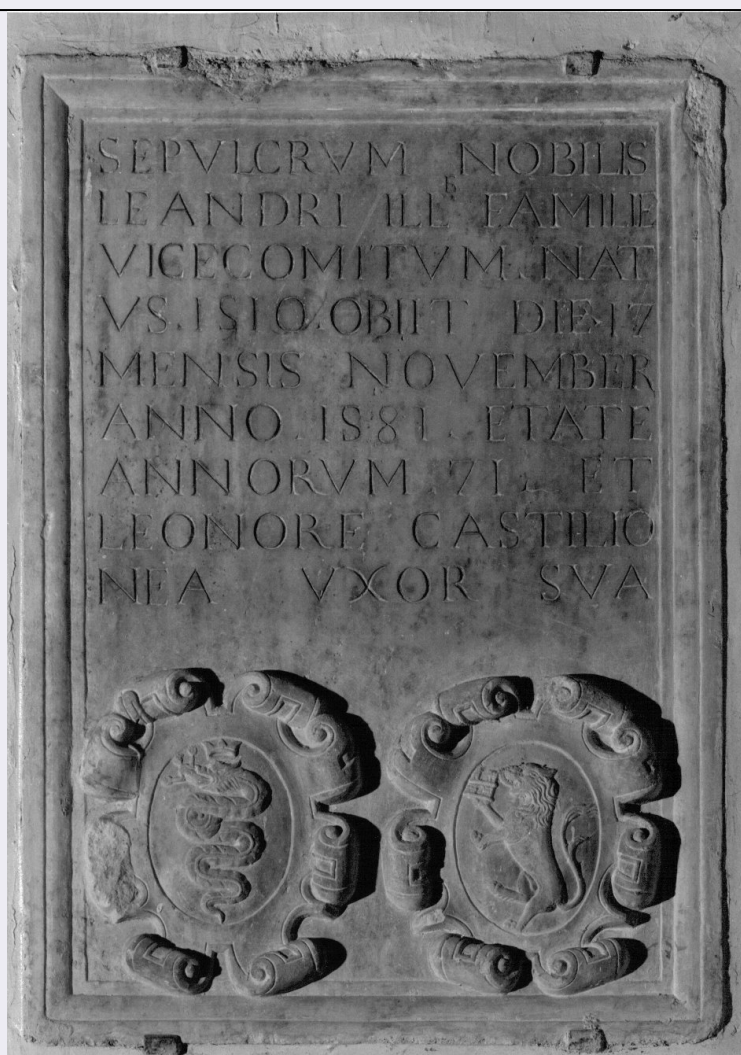 SEPVLCRVM NOBILIS
LEANDRI ILL B FAMILIE
VICECOMITVM . NAT
VS . 1510 . OBIIT DIE . 17
MENSIS NOVEMBER
ANNO . 1581 . ETATE
ANNORVM . 71 . ET
LEONORE CASTILIO
NEA VXOR SVA